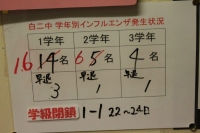 白二中 学年別インフルエンザ発生状況
1学年 2学年 3学年
16 14名 6 5名 4名
早退 3 早退 1 早退 1
学級閉鎖 1-1 22〜24日